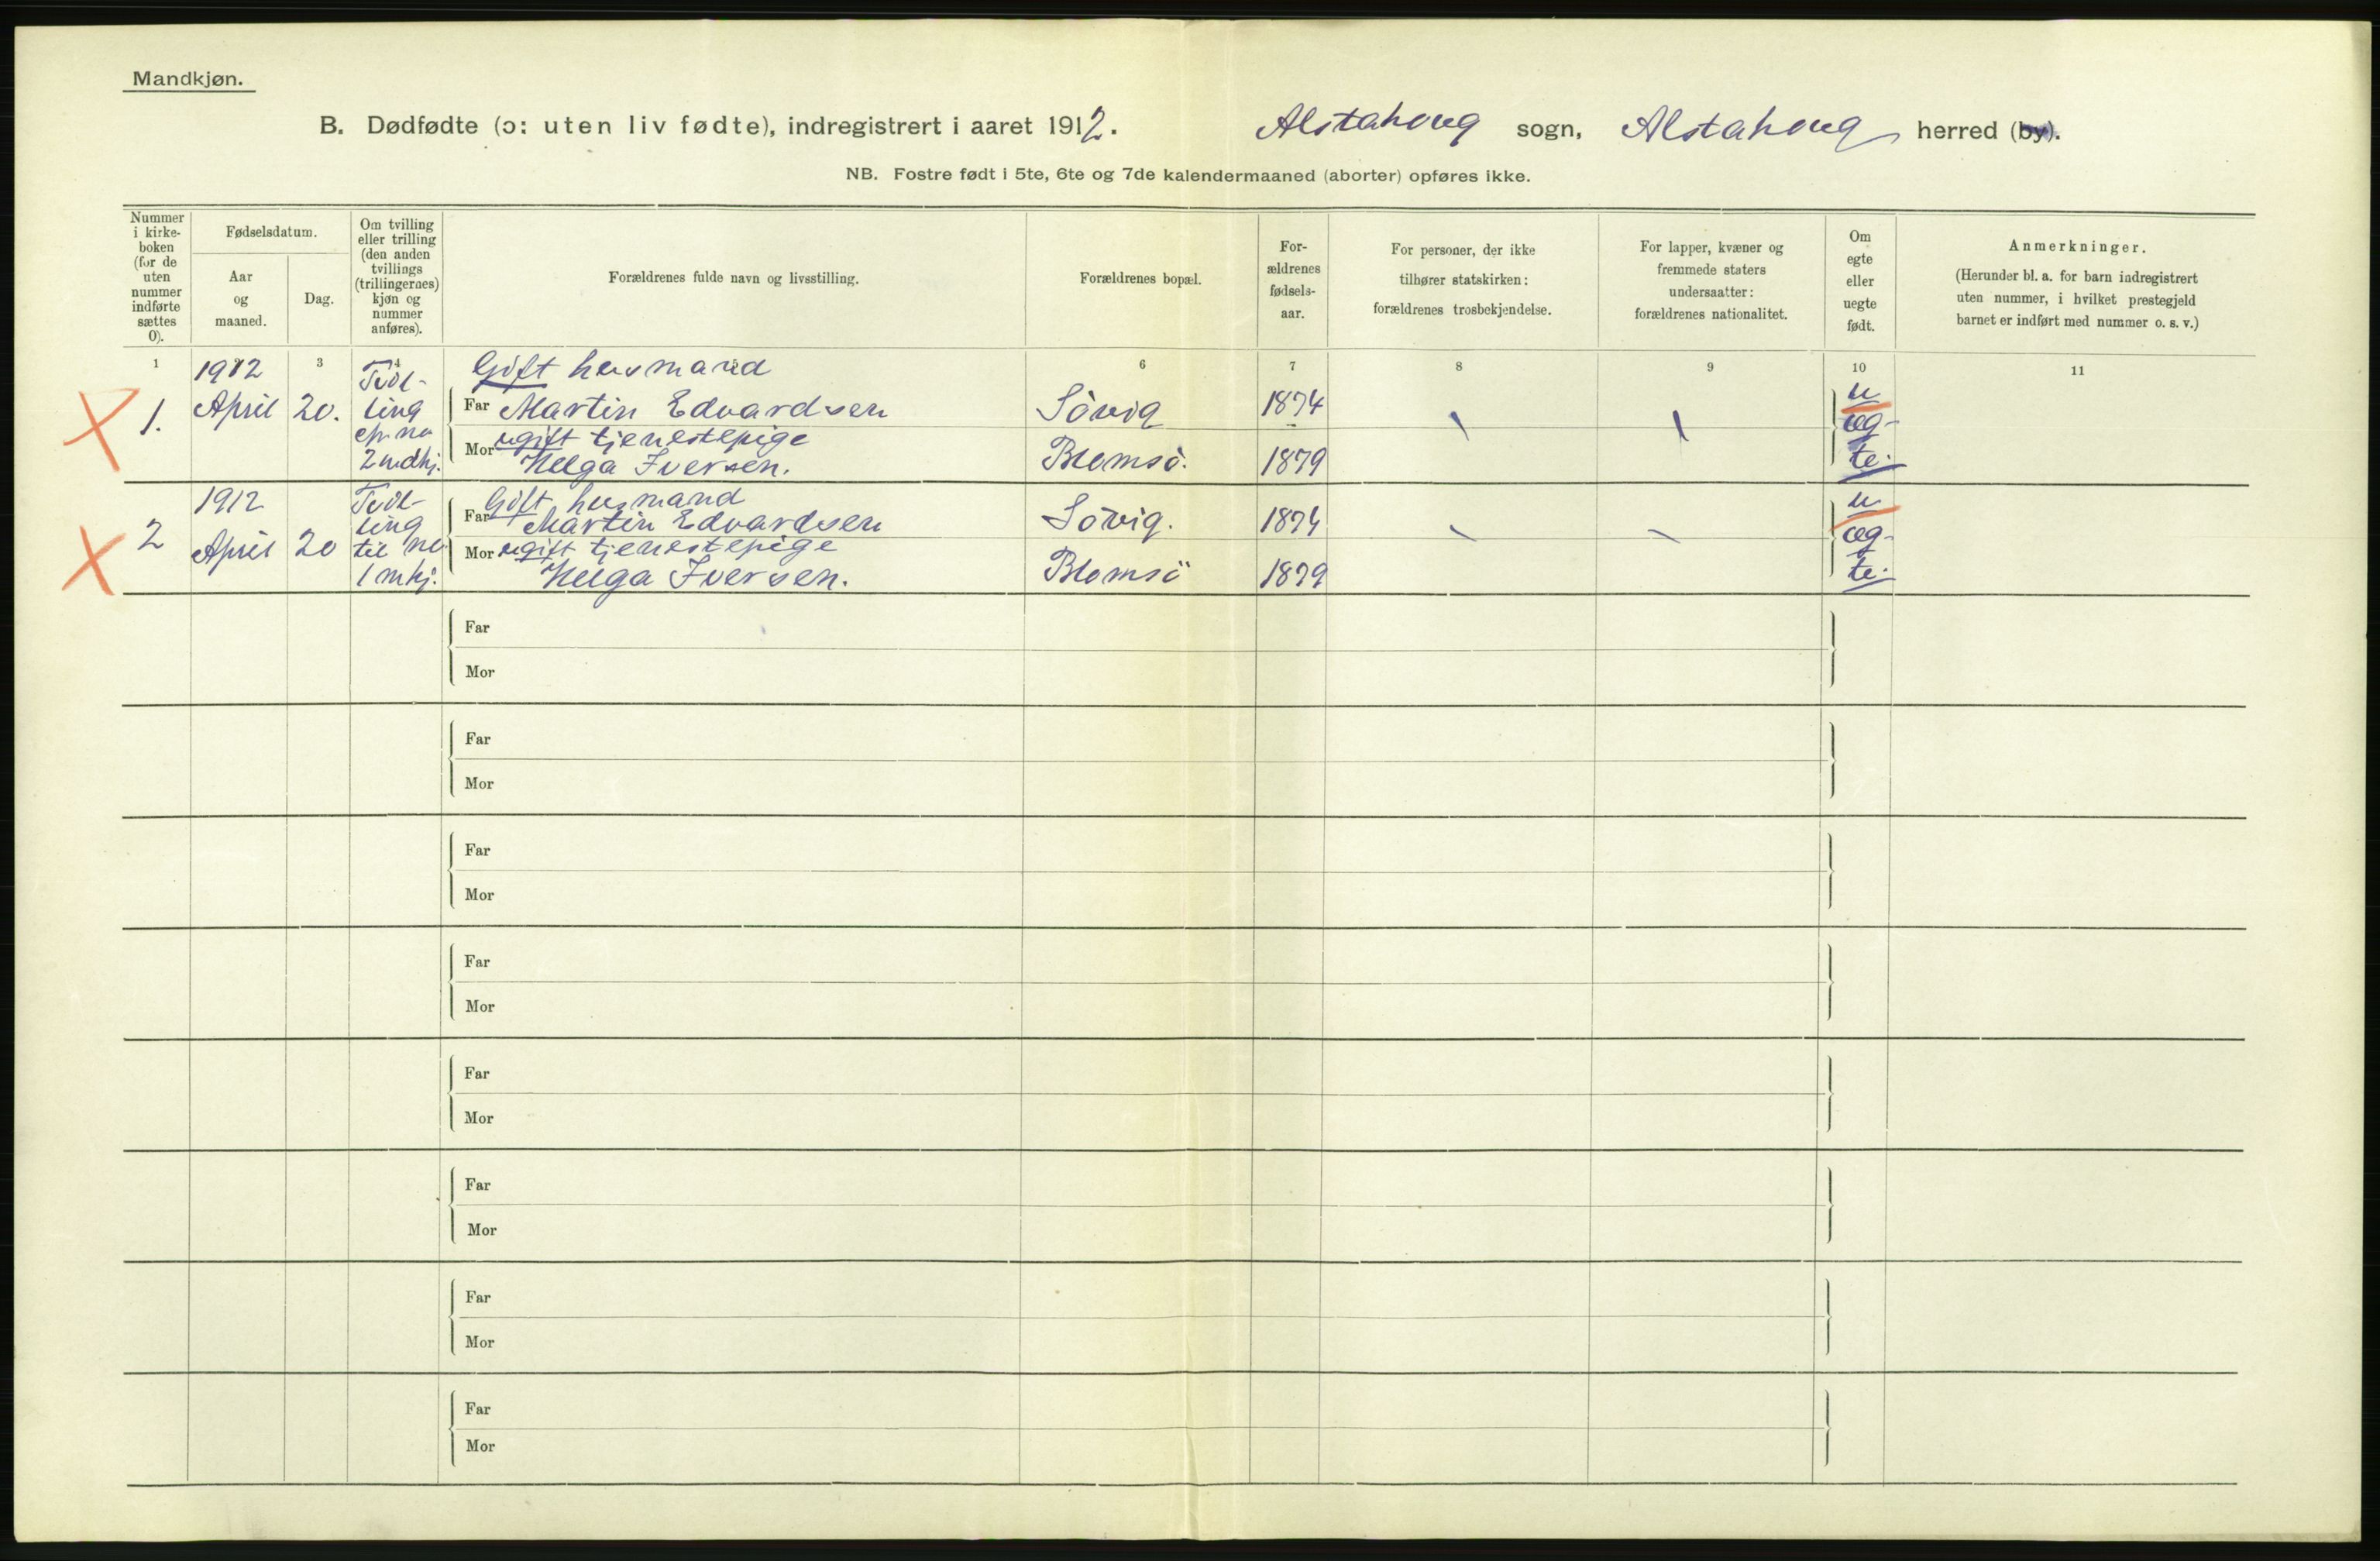 Mandkjøn.
B. Dødfødte (ɔ: uten liv fødte), indregistrert i aaret 1912. Alstahoug sogn, Alstahoug herred (by).
NB. Fostre født i 5te, 6te og 7de kalendermaaned (aborter) opføres ikke.
Nummer i kirke-boken (for de uten nummer indførte sættes 0).
Fødselsdatum.
Aar og maaned.
Dag.
Om tvilling eller trilling (den anden tvillings (trillingernes) kjøn og nummer anføres).
Forældrenes fulde navn og livsstilling.
Forældrenes bopæl.
For-ældrenes fødsels-aar.
For personer, der ikke tilhører statskirken: forældrenes trosbekjendelse.
For lapper, kvæner og fremmede staters undersaatter: forældrenes nationalitet.
Om egte eller uegte født.
Anmerkninger.
(Herunder bl. a. for barn indregistrert uten nummer, i hvilket prestegjeld barnet er indført med nummer o. s. v.)
1 3 4 6 7 8 9 10 11
1. 1912 April 20. Tvil-ling
2 mdkj.
Gift husmand
Far Martin Edvardsen Søvig 1874
Mor ugift tjenestepige
Helga Iversen. Blomsø. 1879
u æg-te.
2 1912 April 20 Tvil-ling til no 1 mkj.
Gift husmand
Far Martin Edvardsen Søvig. 1874
Mor ugift tjenestepige
Helga Iversen. Blomsø 1879
u æg-te.
Far
Mor
Far
Mor
Far
Mor
Far
Mor
Far
Mor
Far
Mor
Far
Mor
Far
Mor